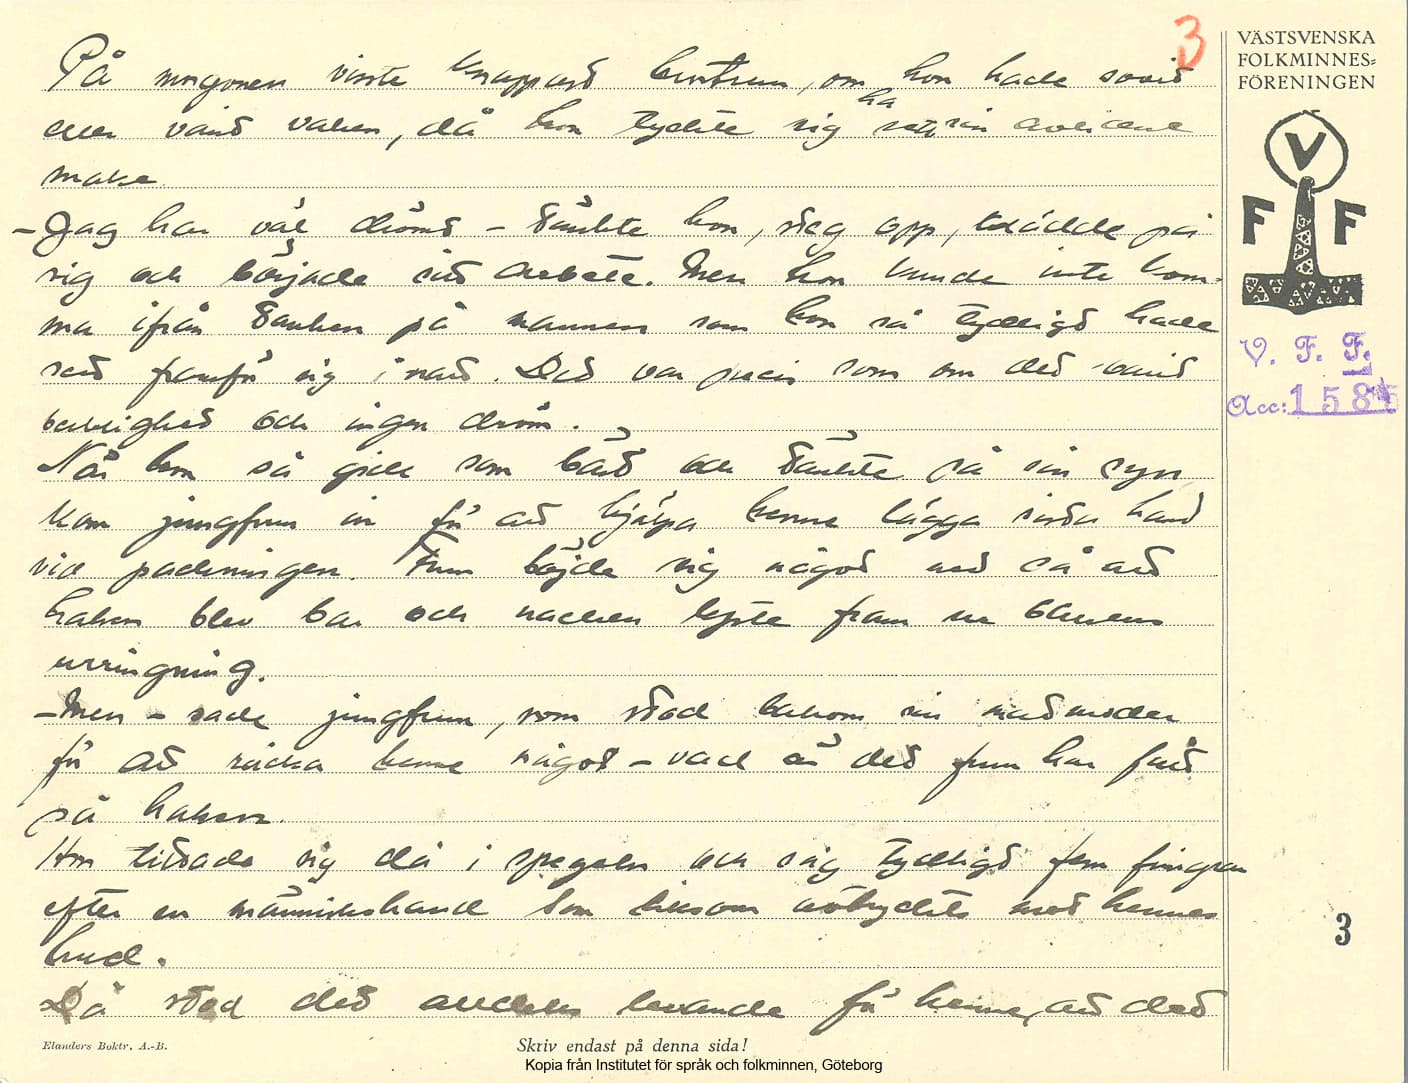 3
VÄSTSVENSKA
FOLKMINNES=
FÖRENINGEN
V
F F
V. F. F.
Acc: 1585
På morgonen visste knappast hustrun, om hon hade sovit
eller varit vaken, då hon tyckte sig ha sett sin avlidne
make.
- Jag har väl drömt - tänkte hon, steg opp, klädde på
sig och började sitt arbete. Men hon kunde inte kom-
ma ifrån tanken på mannen som hon så tydligt hade
sett framför sig i natt. Det var precis som om det varit
verklighet och ingen dröm.
När hon så gick som bäst och tänkte på sin syn,
kom jungfrun in för att hjälpa henne lägga sista hand
vid packningen. Frun böjde sig något ned så att
halsen blev bar och nacken lyste fram ur blusens
urringning.
- Men - sade jungfrun, som stod bakom sin matmoder
för att räcka henne något - vad är det frun har fått
på halsen.
Hon tittade sig då i spegeln och såg tydligt fem fingrar
efter en människohand som liksom avtryckts mot hennes
hud.
Då stod det alldeles levande för henne, att det
3
Elanders Boktr. A.-B.
Skriv endast på denna sida!
Kopia från Institutet för språk och folkminnen, Göteborg